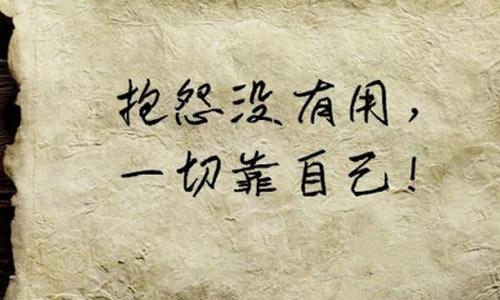 抱怨没有用，
一切靠自己！